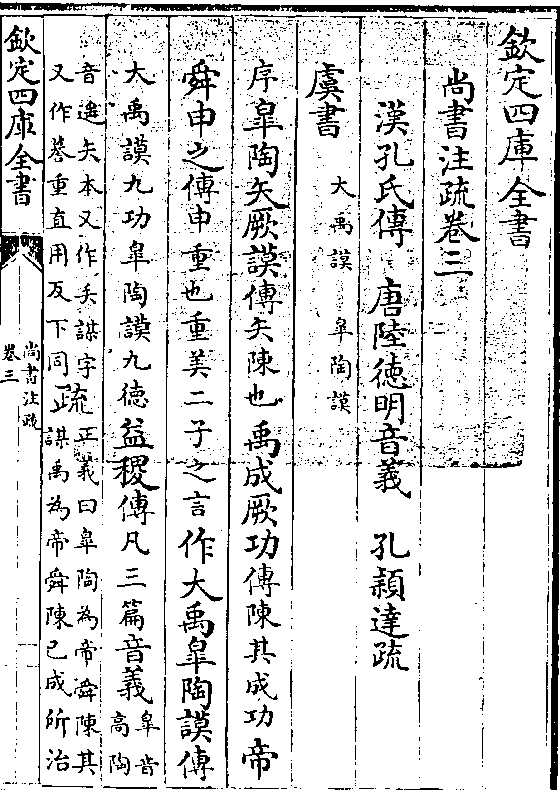 欽定四庫全書
尚書注疏卷三
漢孔氏傳　唐陸德明音義　孔穎達疏
虞書
大禹謨　皋陶謨
序皋陶矢厥謨傳矢陳也禹成厥功傳陳其成功帝
舜申之傳申重也重美二子之言作大禹皋陶謨傳
大禹謨九功皋陶謨九德益稷傳凡三篇音義
皋音
高陶
音遙矢本又作𠂕謨字
又作謩重直用反下同
疏
正義曰皋陶為帝舜陳其
謀禹為帝舜陳已成所治
欽定四庫全書
尚書注疏
卷三